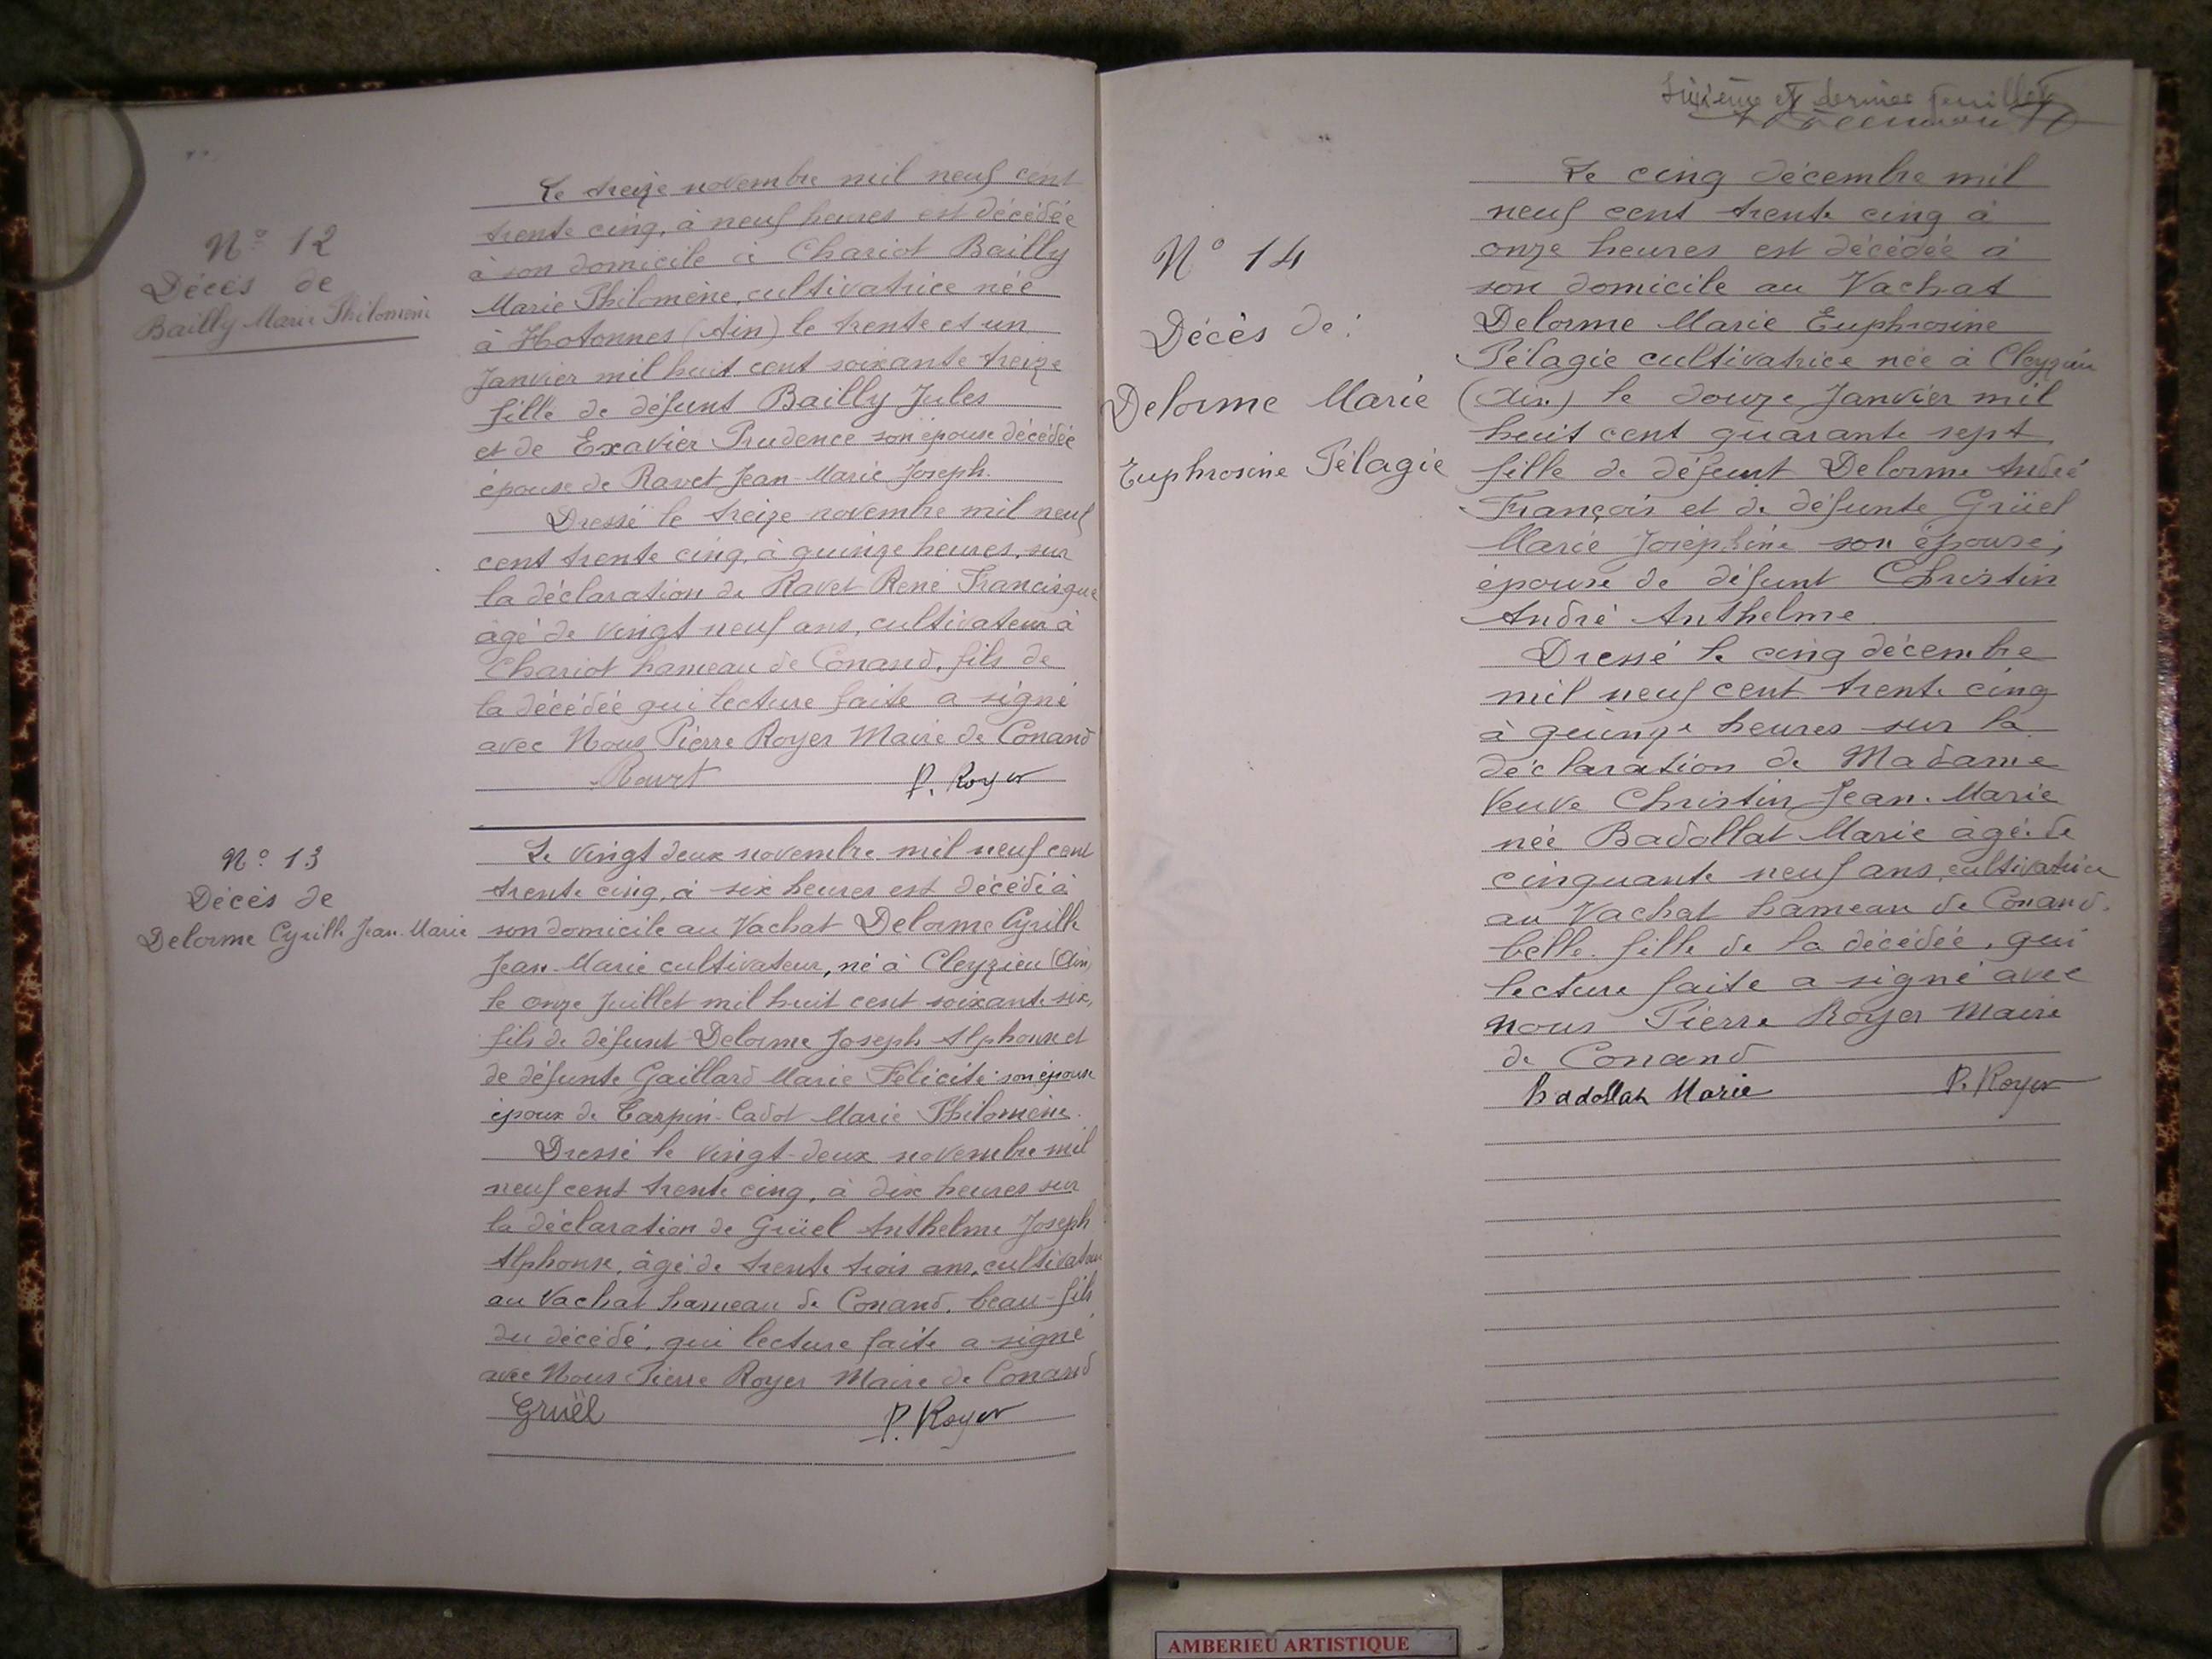 N° 12
Décès de
Bailly Marie Philomène
Le treize novembre mil neuf cent
trente cinq, à neuf heures est décédée
à son domicile à Chariot Bailly
Marie Philomène, cultivatrice née
à Hotonnes (Ain) le trente et un
Janvier mil huit cent soixante treize
fille de défunt Bailly Jules
et de Exavier Prudence son épouse décédée
épouse de Ravet Jean-Marie Joseph.
Dressé le treize novembre mil neuf
cent trente cinq, à quinze heures, sur
la déclaration de Ravet René Francisque
âgé de vingt neuf ans, cultivateur à
Chariot hameau de Conand, fils de
la décédée qui lecture faite a signé
avec Nous Pierre Royer Maire de Conand
P. Royer
N° 13
Décès de
Delorme Cyrille Jean-Marie
Le vingt deux novembre mil neuf cent
trente cinq, à six heures est décédé à
son domicile au Vachat Delorme Cyrille
Jean-Marie cultivateur, né à Cleyzieu (Ain)
le onze Juillet mil huit cent soixante six,
fils de défunt Delorme Joseph Alphonse et
de défunte Gaillard Marie Félicité son épouse
époux de Tarpin-Cadot Marie Philomène.
Dressé le vingt-deux novembre mil
neuf cent trente cinq, à dix heures sur
la déclaration de Grüel Anthelme Joseph
Alphonse, âgé de trente trois ans, cultivateur
au Vachat hameau de Conand, beau-fils
du décédé, qui lecture faite a signé
avec Nous Pierre Royer Maire de Conand
Gruël P. Royer
et dernier feuillet
N° 14
Décès de:
Delorme Marie
Euphrosine Pélagie
Le cinq décembre mil
neuf cent trente cinq à
onze heures est décédée à
son domicile au Vachat
Delorme Marie Euphrosine
Pélagie cultivatrice née à Cleyzieu
(Ain) le douze Janvier mil
huit cent quarante sept
fille de défunt Delorme André
François et de défunte Grüel
Marie Joséphine son épouse,
épouse de défunt Christin
André Anthelme.
Dressé le cinq décembre
mil neuf cent trente cinq
à quinze heures sur la
déclaration de Madame
Veuve Christin Jean-Marie
née Badollat Marie âgée de
cinquante neuf ans, cultivatrice
au Vachat hameau de Conand,
belle-fille de la décédée, qui
lecture faite a signé avec
nous Pierre Royer Maire
de Conand
Badollat Marie P. Royer
AMBERIEU ARTISTIQUE